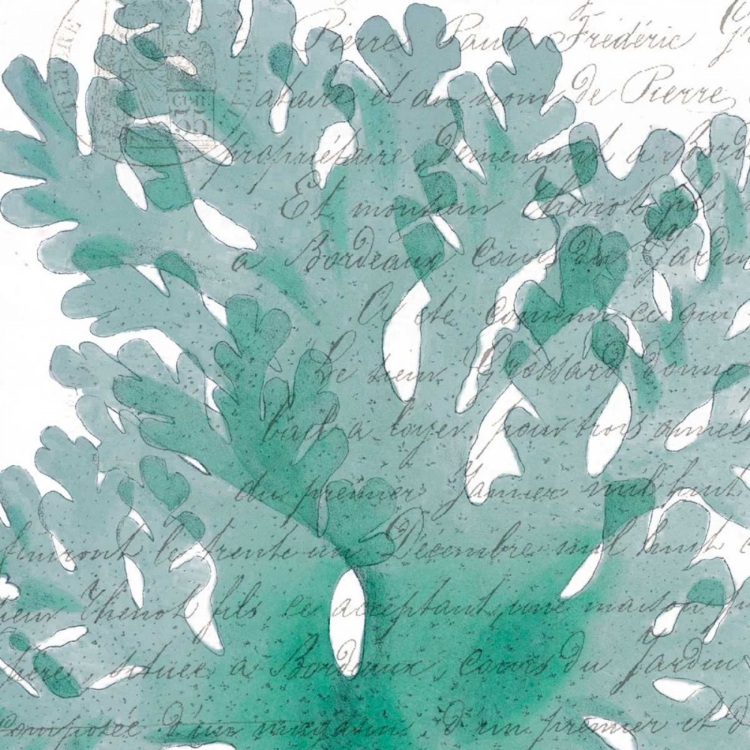 Pierre Paul Frédéric G
et au nom de Pierre
propriétaire, demeurant à Bord
Et monsieur Thenot fils
à Bordeaux cours du Jardin
A été convenu ce qui
Le sieur Grossard donne
bail à loyer, pour trois années
du premier Janvier mil huit
le trente un Décembre mil huit c
ieur Thenot fils, ce acceptant, une maison
située à Bordeaux, cours du Jardin
Composée d'un magasin, d'un premier et d